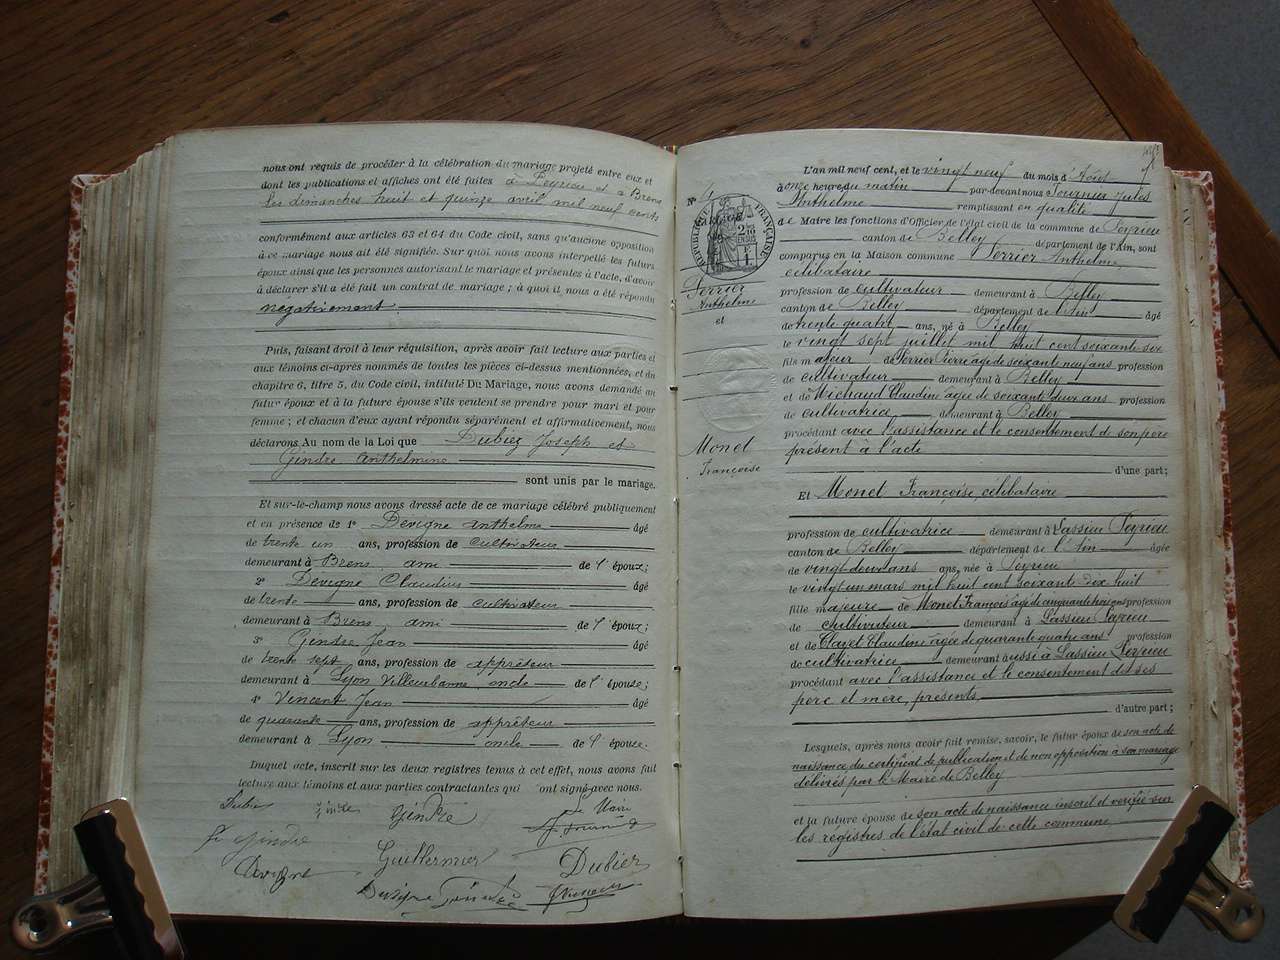 nous ont requis de procéder à la célébration du mariage projeté entre eux et
dont les publications et affiches ont été faites à Peyrieu et à Brens
les dimanches huit et quinze avril mil neuf cents
conformément aux articles 63 et 64 du Code civil, sans qu'aucune opposition
à ce mariage nous ait été signifiée. Sur quoi nous avons interpellé les futurs
époux ainsi que les personnes autorisant le mariage et présentes à l'acte, d'avoir
à déclarer s'il a été fait un contrat de mariage ; à quoi il nous a été répondu
négativement.
Puis, faisant droit à leur réquisition, après avoir fait lecture aux parties et
aux témoins ci-après nommés de toutes les pièces ci-dessus mentionnées, et du
chapitre 6, titre 5, du Code civil, intitulé Du Mariage, nous avons demandé au
futur époux et à la future épouse s'ils veulent se prendre pour mari et pour
femme ; et chacun d'eux ayant répondu séparément et affirmativement, nous
déclarons Au nom de la Loi que Dubiez Joseph et
Gindre Anthelmine
sont unis par le mariage.
Et sur-le-champ nous avons dressé acte de ce mariage célébré publiquement
et en présence de 1º Devigne Anthelme âgé
de trente un ans, profession de cultivateur
demeurant à Brens ami de l'époux;
2º Devigne Claudius âgé
de trente ans, profession de cultivateur
demeurant à Brens ami de l'époux;
3º Gindre Jean âgé
de trente sept ans, profession de apprêteur
demeurant à Lyon Villeurbanne oncle de l'épouse;
4º Vincent Jean âgé
de quarante ans, profession de apprêteur
demeurant à Lyon oncle de l'épouse.
Duquel acte, inscrit sur les deux registres tenus à cet effet, nous avons fait
lecture aux témoins et aux parties contractantes qui ont signé avec nous.
Gindre Le Maire
Gindre
Guillermier Dubier
Devigne
Nº
RÉPUBLIQUE FRANÇAISE
Perrier
Anthelme
et
Monet
Françoise
L'an mil neuf cent, et le vingt neuf du mois d'Août
à onze heures du matin par-devant nous Fournier Jules
Anthelme remplissant en qualité
de Maire les fonctions d'Officier de l'état civil de la commune de Peyrieu
canton de Belley département de l'Ain, sont
comparus en la Maison commune Perrier Anthelme,
célibataire
profession de cultivateur demeurant à Belley
canton de Belley département de l'Ain âgé
de trente quatre ans, né à Belley
le vingt sept juillet mil huit cent soixante six
fils majeur de Perrier Pierre âgé de soixante neuf ans profession
de cultivateur demeurant à Belley
et de Michaud Claudine âgée de soixante deux ans profession
de cultivatrice demeurant à Belley
procédant avec l'assistance et le consentement de son père
présent à l'acte
d'une part;
Et Monet Françoise, célibataire
profession de cultivatrice demeurant à Lassieu Peyrieu
canton de Belley département de l'Ain âgée
de vingt-deux ans ans, née à Peyrieu
le vingt un mars mil huit cent soixante dix huit
fille majeure de Monet François âgé de cinquante trois ans profession
de cultivateur demeurant à Lassieu Peyrieu
et de Clavet Claudine âgée de quarante quatre ans profession
de cultivatrice demeurant aussi à Lassieu Peyrieu
procédant avec l'assistance et le consentement de ses
père et mère, présents
d'autre part ;
Lesquels, après nous avoir fait remise, savoir, le futur époux de son acte de
naissance du certificat de publication et de non opposition à son mariage
délivrés par le Maire de Belley
et la future épouse de son acte de naissance inscrit et vérifié sur
les registres de l'état civil de cette commune